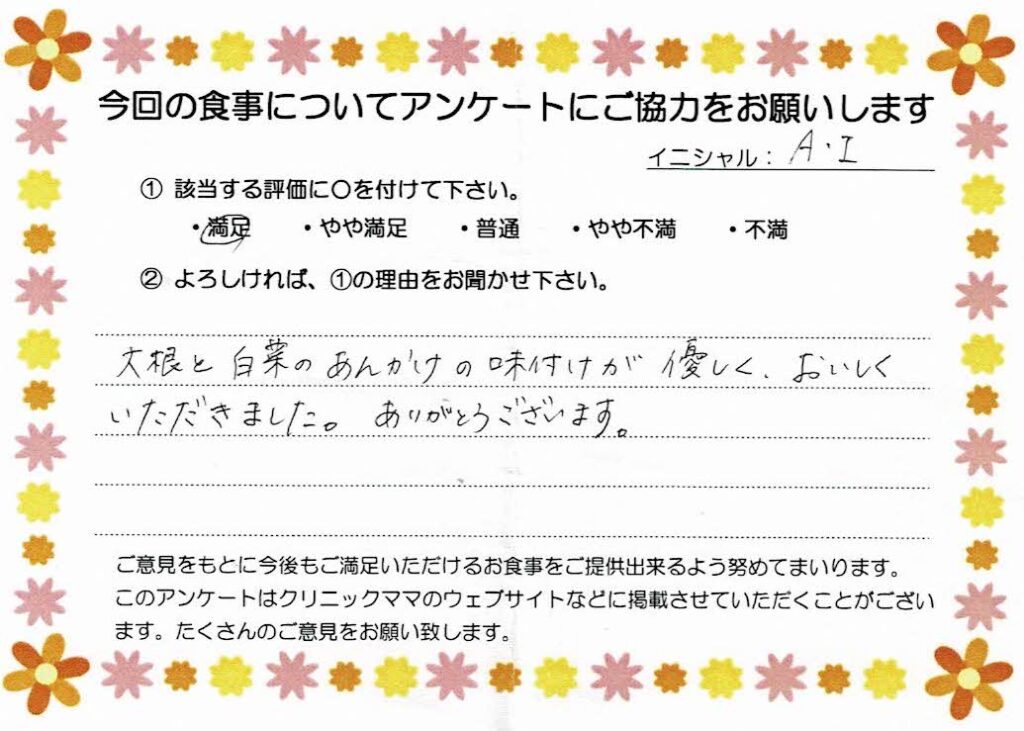 今回の食事についてアンケートにご協力をお願いします
イニシャル： A・I
① 該当する評価に〇を付けて下さい。
・満足 ・やや満足 ・普通 ・やや不満 ・不満
② よろしければ、①の理由をお聞かせ下さい。
大根と白菜のあんかけの味付けが優しく、おいしく
いただきました。ありがとうございます。
ご意見をもとに今後もご満足いただけるお食事をご提供出来るよう努めてまいります。
このアンケートはクリニックママのウェブサイトなどに掲載させていただくことがござい
ます。たくさんのご意見をお願い致します。